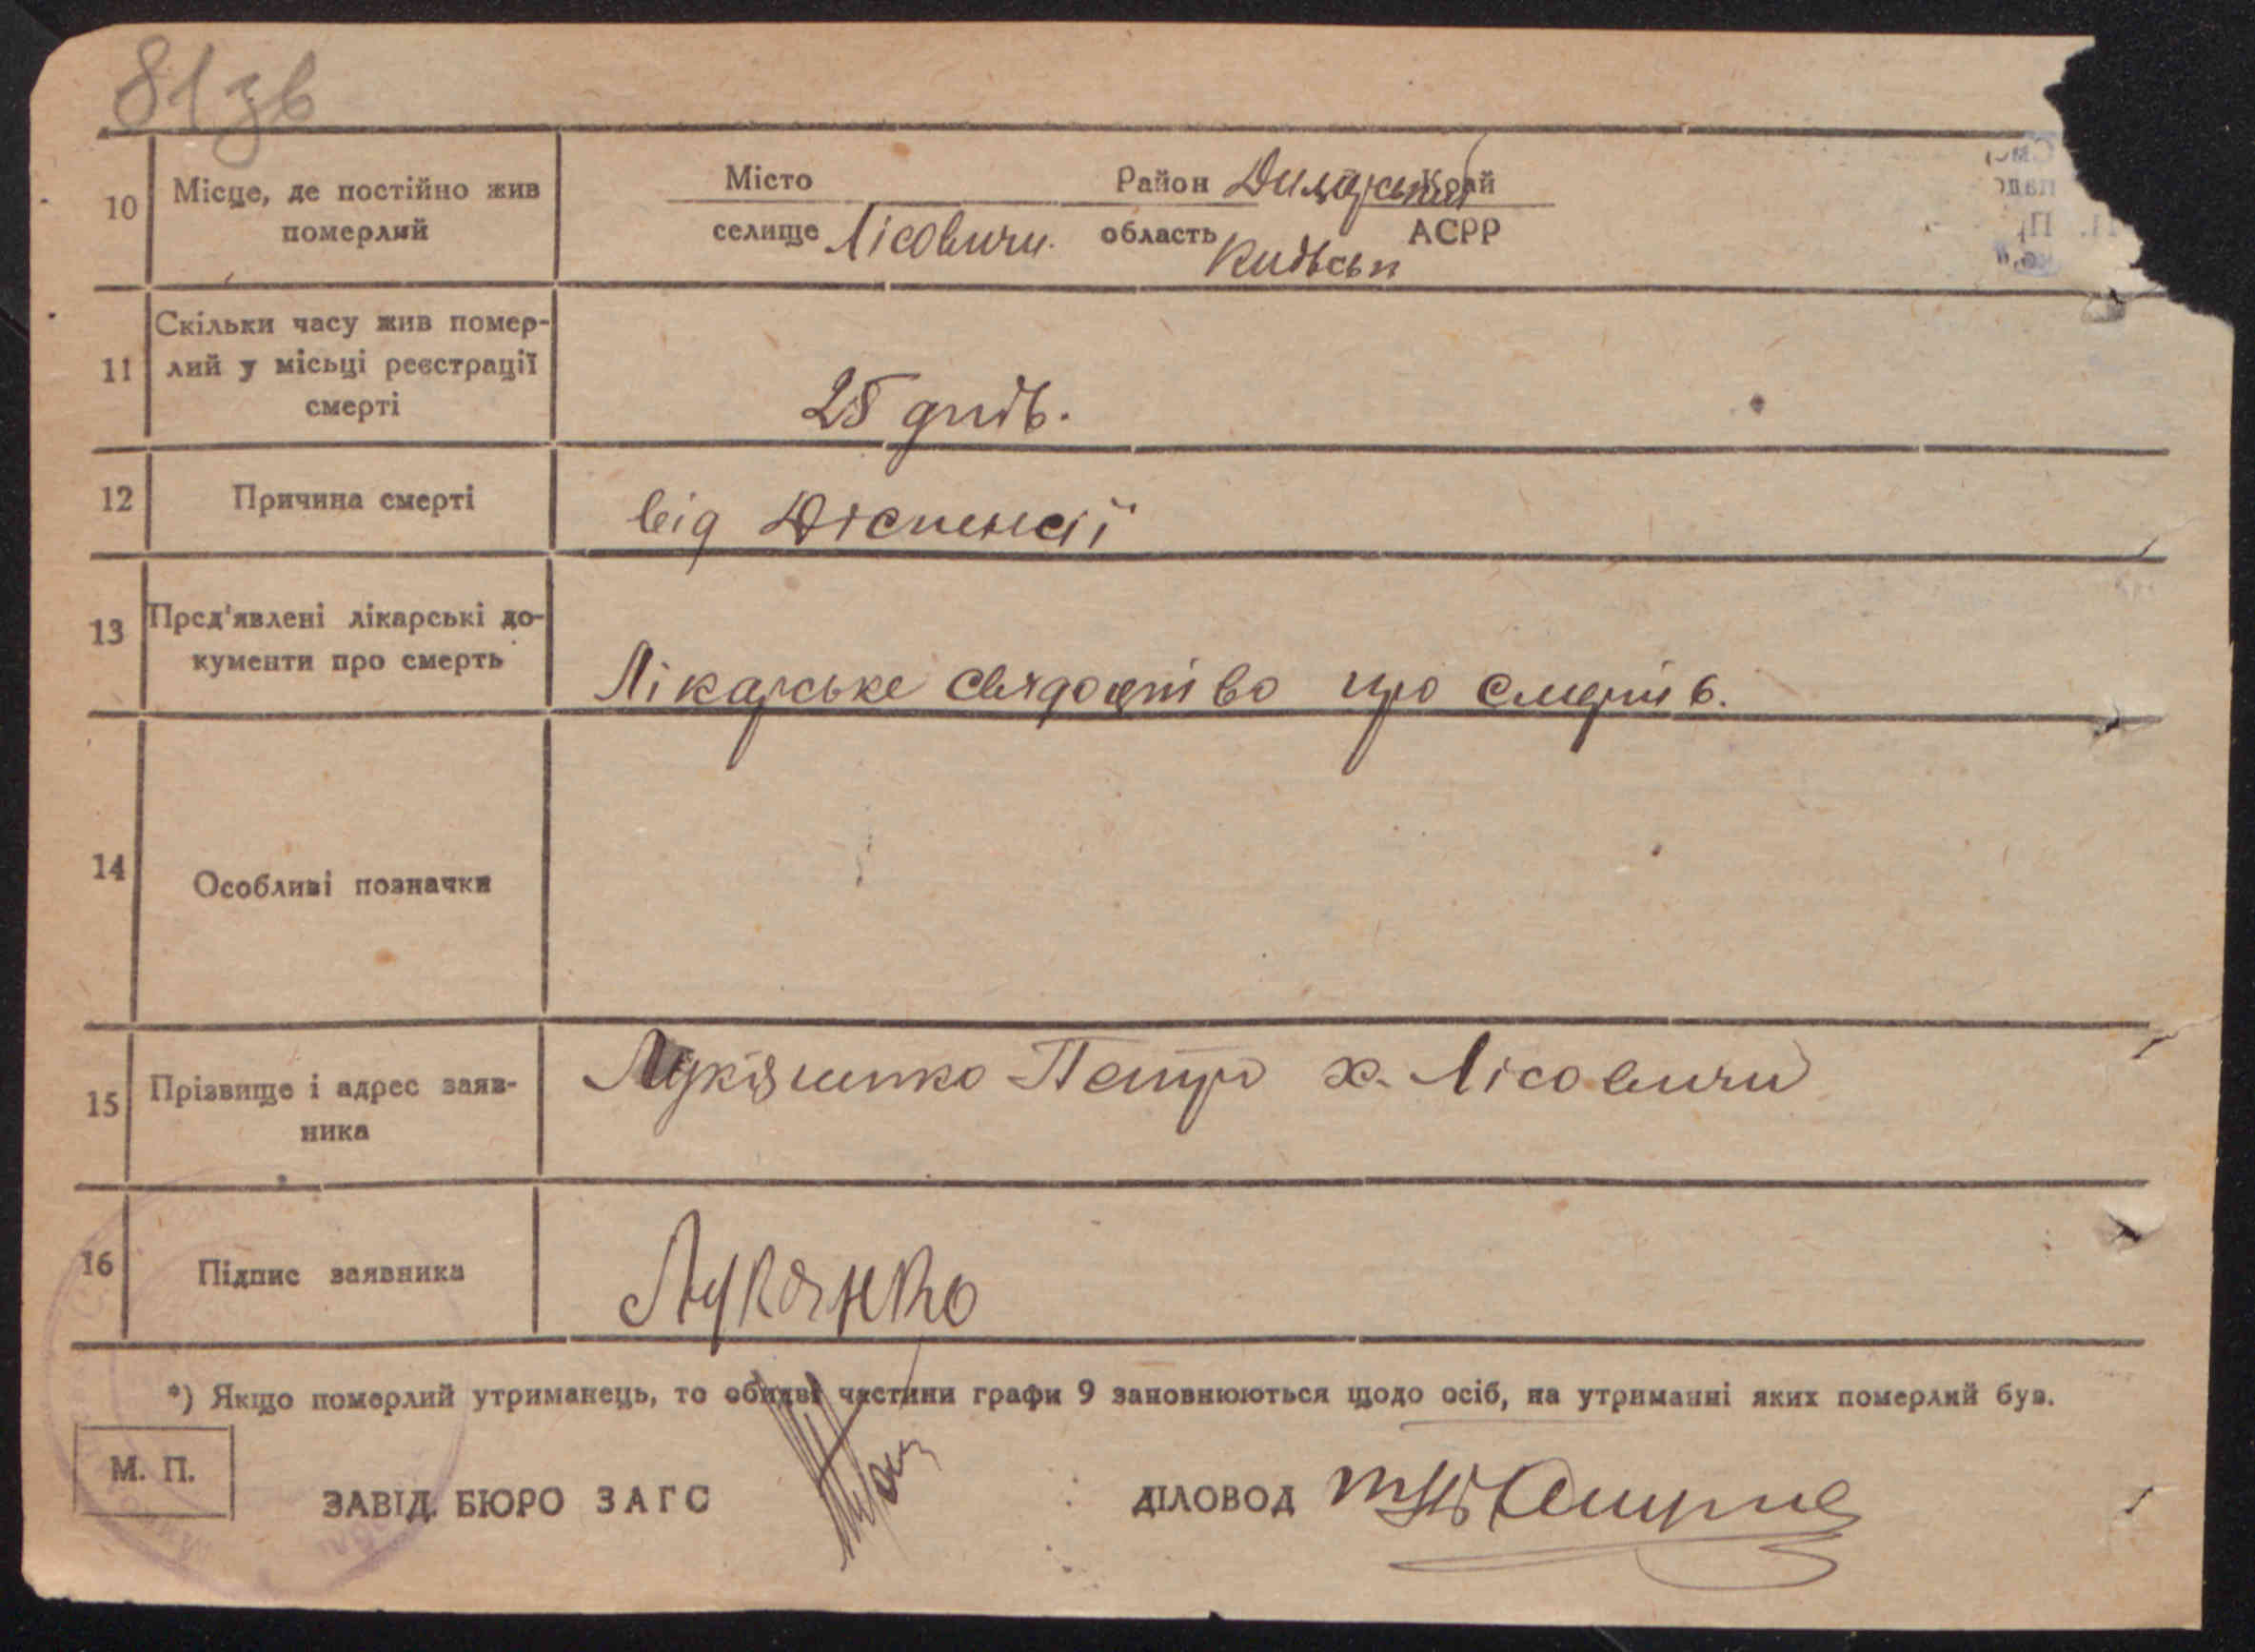 81 зв
10 Місце, де постійно жив померлий
Місто Район Димерський Край
селище Лісовичи. область Київськ АСРР
11 Скільки часу жив помер-
лий у місьці реєстрації
смерті
25 днів.
12 Причина смерті
від Діспепсії
13 Пред'явлені лікарські до-
кументи про смерть
Лікарське свядоцтво про смерть.
14 Особливі позначки
15 Прізвище і адрес заяв-
ника
Петро х. Лісовичи
16 Підпис заявника
Лукяненко
*) Якщо померлий утриманець, то обидві частини графи 9 заповнюються щодо осіб, на утриманні яких померлий був.
М. П.
ЗАВІД. БЮРО ЗАГС
ДІЛОВОД